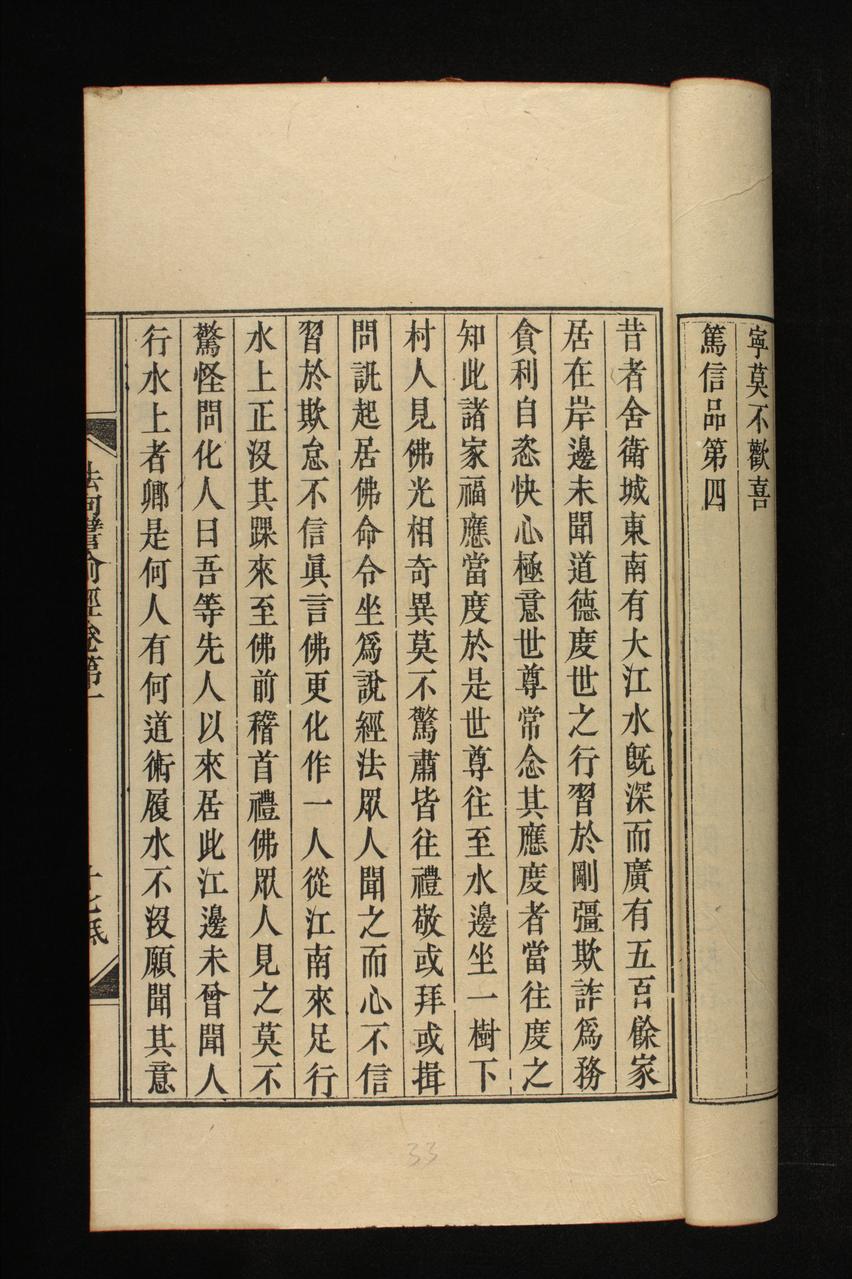 寧莫不歡喜
篤信品第四
昔者舍衛城東南有大江水旣深而廣有五百餘家
居在岸邊未聞道德度世之行習於剛彊欺詐爲務
貪利自恣快心極意世尊常念其應度者當往度之
知此諸家福應當度於是世尊往至水邊坐一樹下
村人見佛光相奇異莫不驚肅皆往禮敬或拜或揖
問訊起居佛命令坐爲說經法眾人聞之而心不信
習於欺怠不信眞言佛更化作一人從江南來足行
水上正沒其踝來至佛前稽首禮佛眾人見之莫不
驚怪問化人曰吾等先人以來居此江邊未曾聞人
行水上者卿是何人有何道術履水不沒願聞其意
法句譬喻經卷第一
十七
33